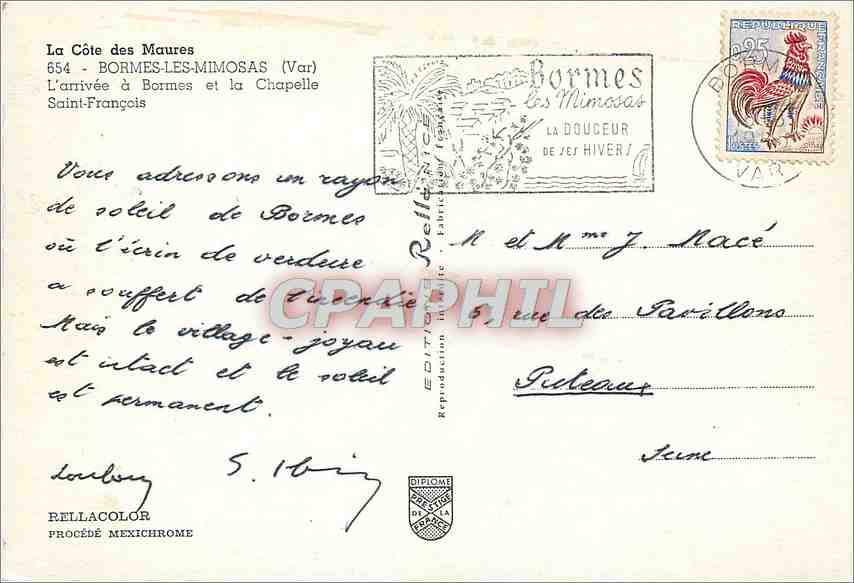 La Côte des Maures
654 - BORMES-LES-MIMOSAS (Var)
L'arrivée à Bormes et la Chapelle
Saint-François
Bormes
les Mimosas
LA DOUCEUR
DE SES HIVERS
REPUBLIQUE FRANÇAISE
0,25
POSTES
BORMES
VAR
Vous adressons un rayon
de soleil de Bormes
où l'écrin de verdure
a souffert de l'incendie
Mais le village-joyau
est intact et le soleil
est permanent.
EDITIONS Rella NICE
Reproduction interdite - Fabrication Française
M et Mme J. Macé
5, rue des Pavillons
Puteaux
Seine
CPAPHIL
DIPLOME
PRESTIGE
DE LA
FRANCE
RELLACOLOR
PROCÉDÉ MEXICHROME